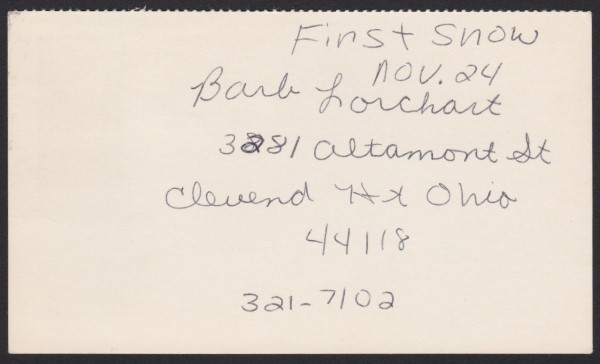 First Snow
Nov. 24
Barb Lorchart
3281 Altamont St
Clevend Ht Ohio
44118
321-7102